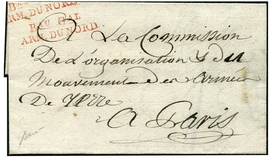 ARM. DU NORD
BAU GAL
ARM. DU NORD.
La Commission
De L'organisation & du
Mouvement des Armées
De Terre
A Paris